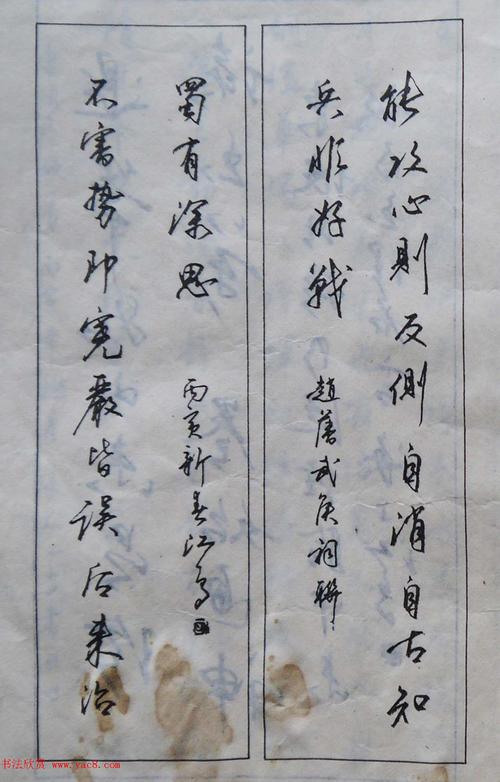 能攻心則反側自消自古知
兵非好戰
趙藩武侯祠聯
不審势即寬嚴皆误后来治
蜀有深思
丙寅新春江
书法欣赏 www.yac8.com